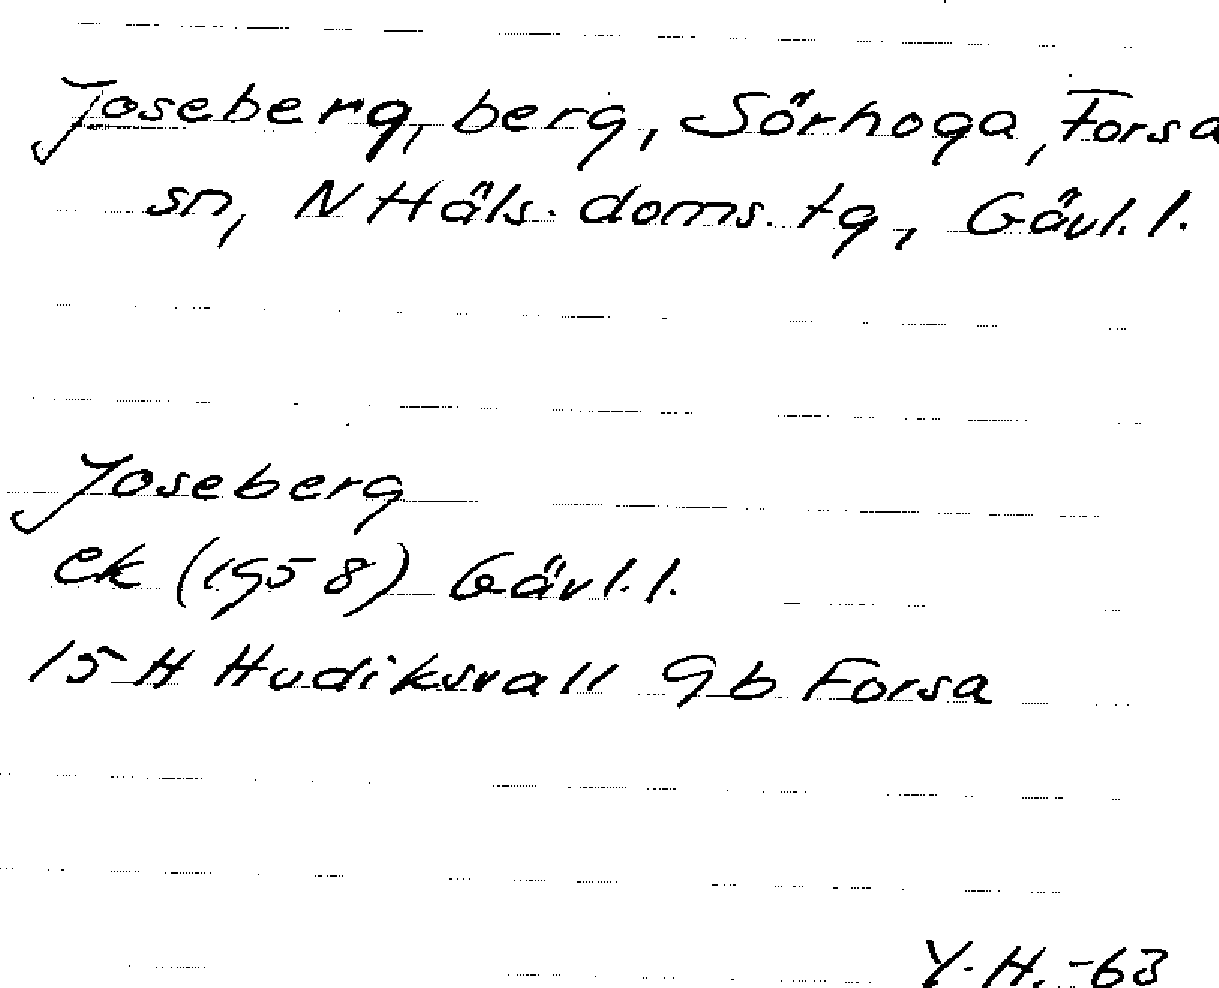 Joseberg, berg, Sörhoga, Forsa
sn, N Häls. doms. tg, Gävl. l.
Joseberg
ek (1958) Gävl. l.
15 H Hudiksvall 9b Forsa
Y. H. -63